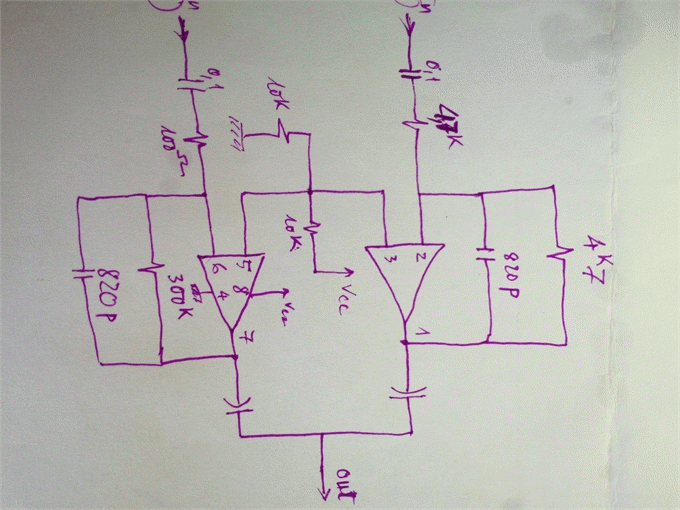 n
n
0,1
0,1
10K
4,7K
100Ω
10K
4K7
6
5
4
8
3
2
820P
300K
820P
Vcc
Vcc
7
1
out